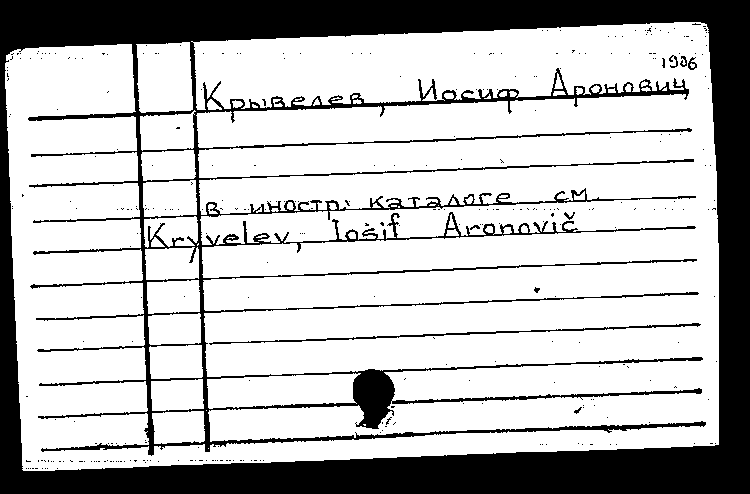 1906
Крывелев, Иосиф Аронович
в иностр. каталоге см.
Kryvelev, Iosif Aronovič